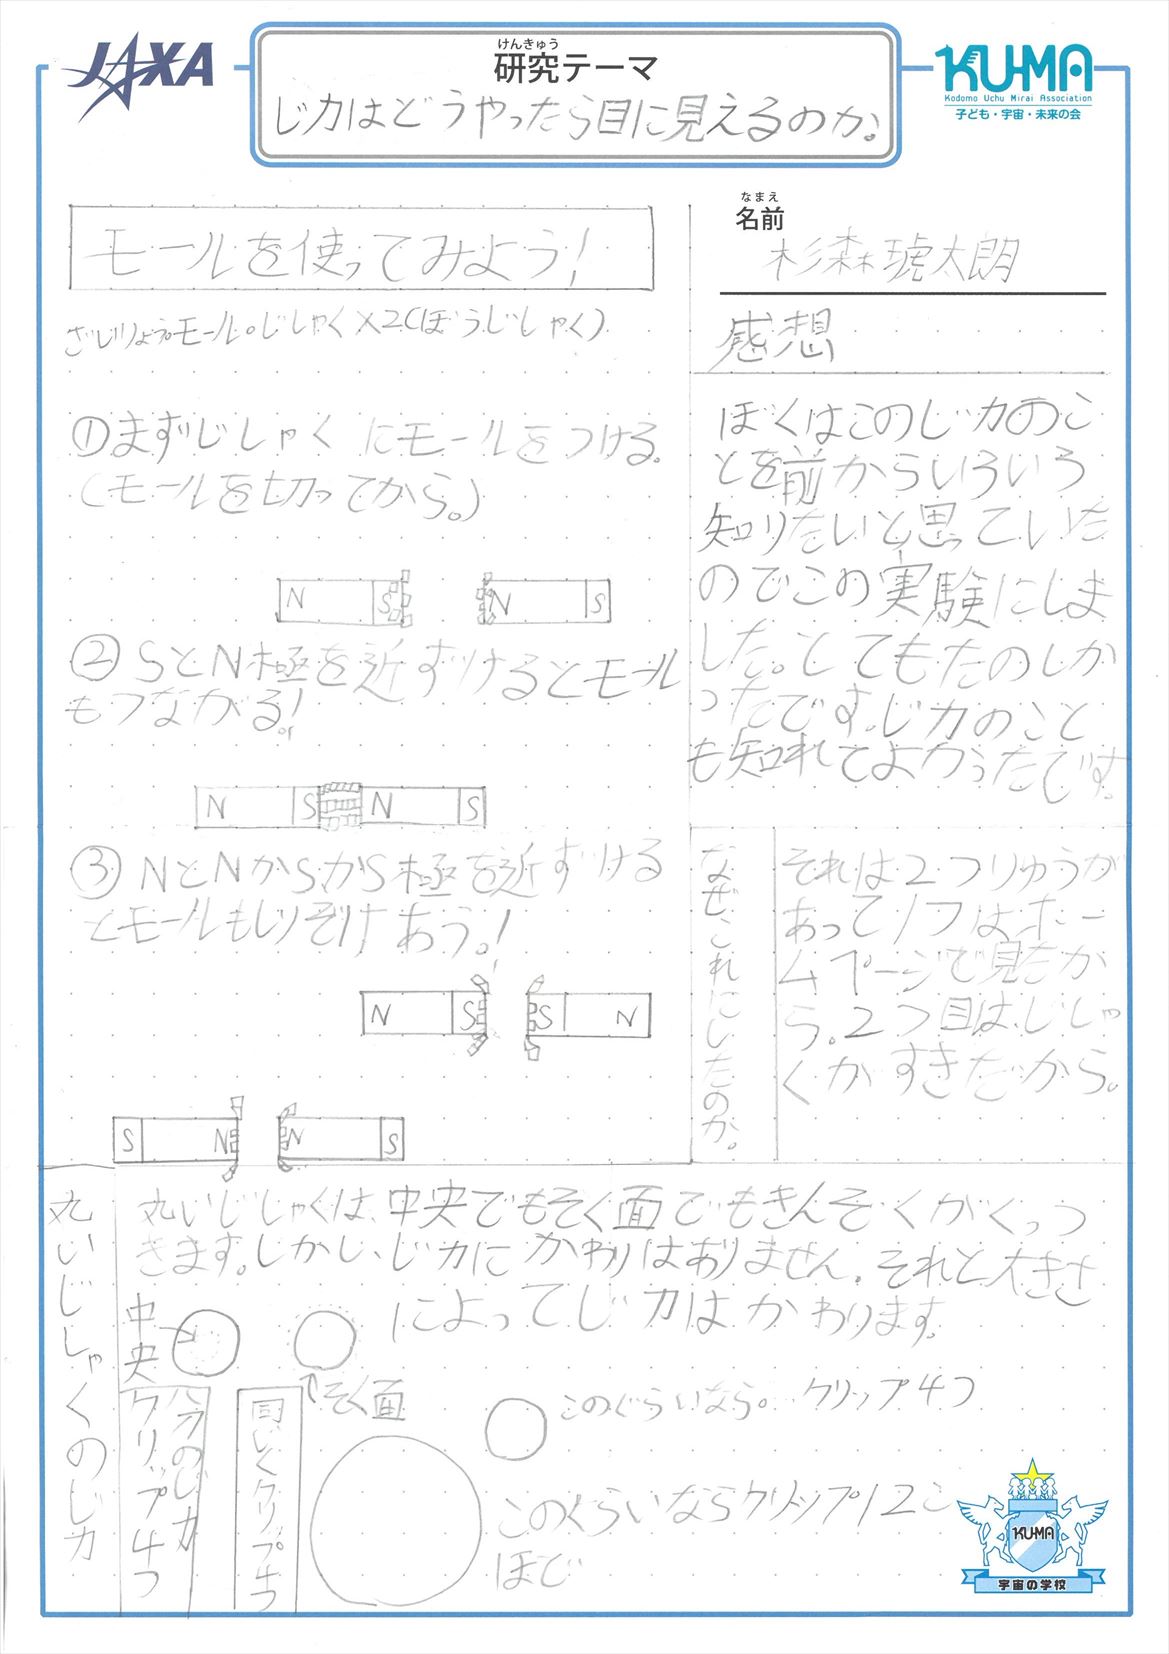 JAXA
けんきゅう
研究テーマ
じ力はどうやったら目に見えるのか。
KU-MA
Kodomo Uchu Mirai Association
子ども・宇宙・未来の会
モールを使ってみよう!
ざいりょう モール。じしゃく×2(ぼうじしゃく)
①まずじしゃくにモールをつける。
(モールを切ってから。)
N S N S
②SとN極を近ずけるとモール
もつながる!
N S N S
③NとNかSかS極を近ずける
とモールもしりぞけあう!
N S S N
S N N S
なまえ
名前
杉森琥太朗
感想
ぼくはこのじ力のこ
とを前からいろいろ
知りたいと思っていた
のでこの実験にしま
した。とてもたのしか
ったです。じ力のこと
も知れてよかったです。
なぜこれにしたのか。
それは2つりゆうが
あって1つはホー
ムページで見たか
ら。2つ目は、じしゃ
くがすきだから。
丸いじしゃくのじ力
丸いじしゃくは、中央でもそく面でもきんぞくがくっつ
きます。しかし、じ力にかわりはありません。それと大きさ
によってじ力はかわります。
中央
そく面
クリップ4つ
同じくクリップ4つ
このぐらいなら。クリップ4つ
このくらいならクリップ12こ
ほど
KU-MA
宇宙の学校